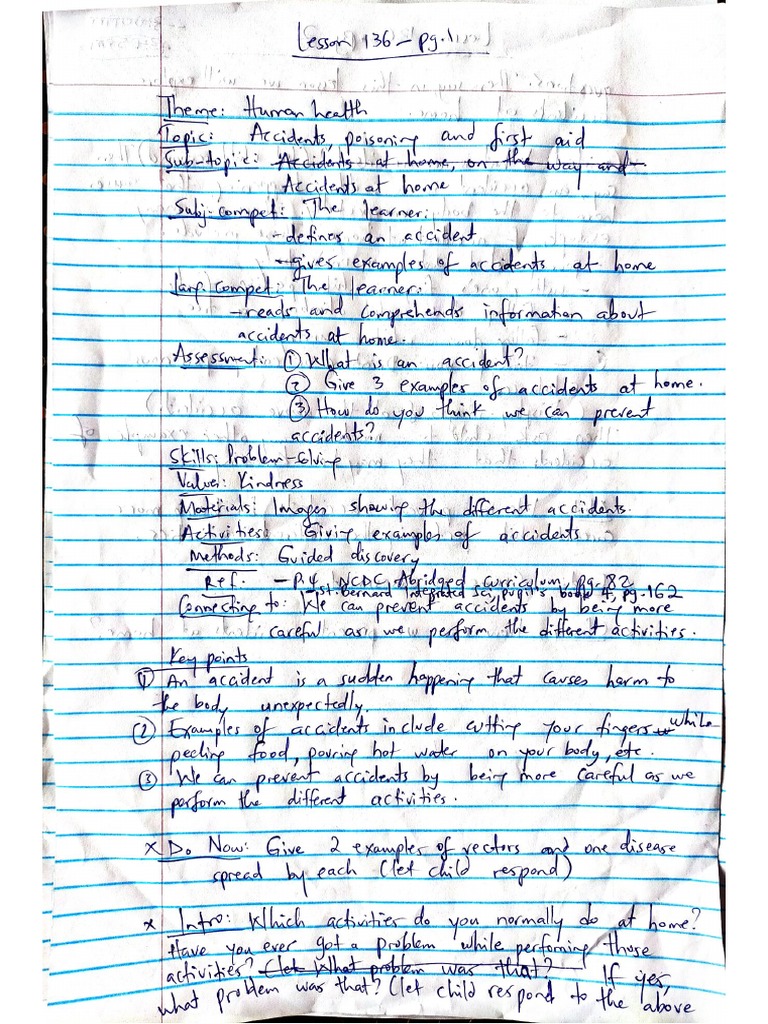 Lesson 136 - pg.1
Theme: Human health
Topic: Accidents, poisoning and first aid
Sub-topic: Accidents at home, on the way and
Accidents at home
Subj. compet: The learner:
- defines an accident
- gives examples of accidents at home
Lang. compet: The learner:
- reads and comprehends information about
accidents at home.
Assessment: ① What is an accident?
② Give 3 examples of accidents at home.
③ How do you think we can prevent
accidents?
Skills: Problem-solving
Values: Kindness
Materials: Images showing the different accidents.
Activities: Giving examples of accidents
Methods: Guided discovery
Ref. - P.4 NCDC Abridged curriculum, pg. 82
- St. Bernard Integrated Sci, pupil's book 4, pg. 162
Connecting to: We can prevent accidents by being more
careful as we perform the different activities.
Key points
① An accident is a sudden happening that causes harm to
the body unexpectedly.
② Examples of accidents include cutting your fingers while
peeling food, pouring hot water on your body, etc.
③ We can prevent accidents by being more careful as we
perform the different activities.
x Do Now: Give 2 examples of vectors and one disease
spread by each (let child respond)
x Intro: Which activities do you normally do at home?
Have you ever got a problem while perfoming those
activities? (let What problem was that? If yes,
what problem was that? (let child respond to the above